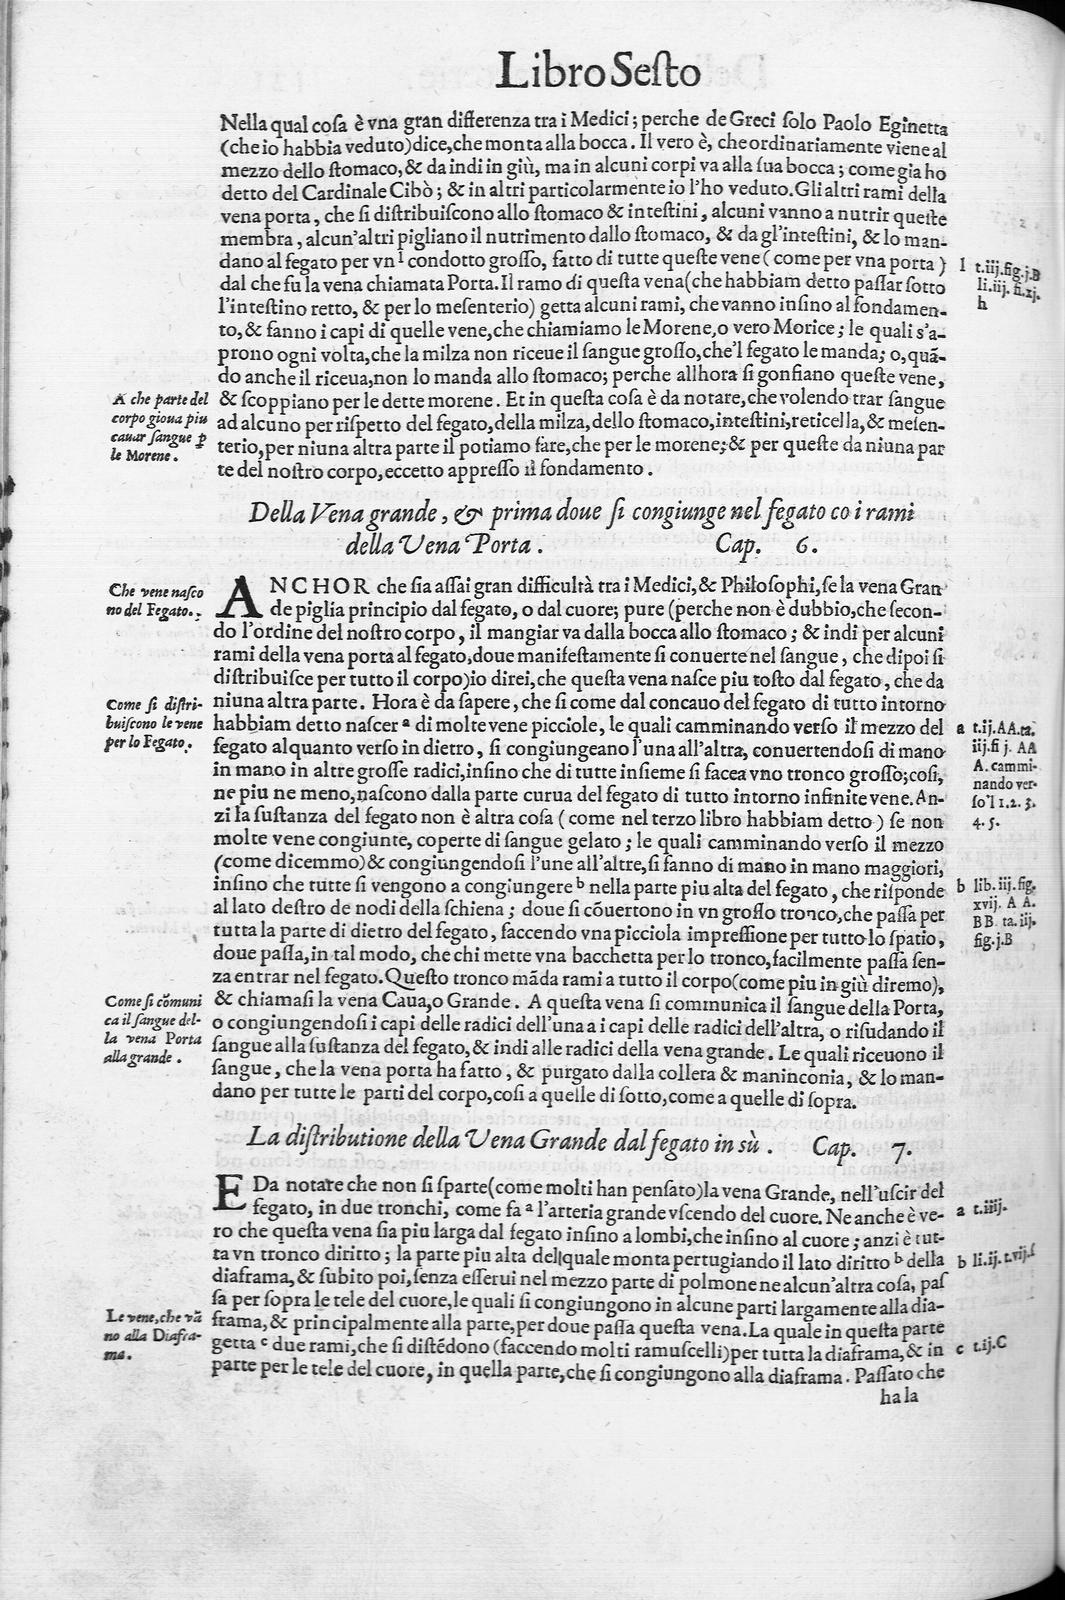 Libro Seſto
Nella qual coſa è vna gran differenza tra i Medici; perche de Greci ſolo Paolo Eginetta
(che io habbia veduto) dice, che monta alla bocca. Il vero è, che ordinariamente viene al
mezzo dello ſtomaco, & da indi in giù, ma in alcuni corpi va alla ſua bocca; come gia ho
detto del Cardinale Cibò; & in altri particolarmente io l'ho veduto. Gli altri rami della
vena porta, che ſi diſtribuiſcono allo ſtomaco & inteſtini, alcuni vanno a nutrir queſte
membra, alcun'altri pigliano il nutrimento dallo ſtomaco, & da gl'inteſtini, & lo man-
dano al fegato per vn 1 condotto groſſo, fatto di tutte queſte vene (come per vna porta)
dal che fu la vena chiamata Porta. Il ramo di queſta vena (che habbiam detto paſſar ſotto
l'inteſtino retto, & per lo meſenterio) getta alcuni rami, che vanno inſino al fondamen-
to, & fanno i capi di quelle vene, che chiamiamo le Morene, o vero Morice; le quali s'a-
prono ogni volta, che la milza non riceue il ſangue groſſo, che'l fegato le manda; o, quã-
do anche il riceua, non lo manda allo ſtomaco; perche allhora ſi gonfiano queſte vene,
& ſcoppiano per le dette morene. Et in queſta coſa è da notare, che volendo trar ſangue
ad alcuno per riſpetto del fegato, della milza, dello ſtomaco, inteſtini, reticella, & meſen-
terio, per niuna altra parte il potiamo fare, che per le morene; & per queſte da niuna par
te del noſtro corpo, eccetto appreſſo il fondamento.
1 t.iij.fig.j.B
li.iij. fi.xj.
h
A che parte del
corpo gioua piu
cauar ſangue p
le Morene.
Della Vena grande, & prima doue ſi congiunge nel fegato co i rami
della Vena Porta. Cap. 6.
ANCHOR che ſia aſſai gran difficultà tra i Medici, & Philoſophi, ſe la vena Gran
de piglia principio dal fegato, o dal cuore; pure (perche non è dubbio, che ſecon-
do l'ordine del noſtro corpo, il mangiar va dalla bocca allo ſtomaco; & indi per alcuni
rami della vena porta al fegato, doue manifeſtamente ſi conuerte nel ſangue, che dipoi ſi
diſtribuiſce per tutto il corpo) io direi, che queſta vena naſce piu toſto dal fegato, che da
niuna altra parte. Hora è da ſapere, che ſi come dal concauo del fegato di tutto intorno
habbiam detto naſcer a di molte vene picciole, le quali camminando verſo il mezzo del
fegato alquanto verſo in dietro, ſi congiungeano l'una all'altra, conuertendoſi di mano
in mano in altre groſſe radici, inſino che di tutte inſieme ſi facea vno tronco groſſo; coſi,
ne piu ne meno, naſcono dalla parte curua del fegato di tutto intorno infinite vene. An-
zi la ſuſtanza del fegato non è altra coſa (come nel terzo libro habbiam detto) ſe non
molte vene congiunte, coperte di ſangue gelato; le quali camminando verſo il mezzo
(come dicemmo) & congiungendoſi l'une all'altre, ſi fanno di mano in mano maggiori,
inſino che tutte ſi vengono a congiungere b nella parte piu alta del fegato, che riſponde
al lato deſtro de nodi della ſchiena; doue ſi cõuertono in vn groſſo tronco, che paſſa per
tutta la parte di dietro del fegato, faccendo vna picciola impreſſione per tutto lo ſpatio,
doue paſſa, in tal modo, che chi mette vna bacchetta per lo tronco, facilmente paſſa ſen-
za entrar nel fegato. Queſto tronco mãda rami a tutto il corpo (come piu in giù diremo),
& chiamaſi la vena Caua, o Grande. A queſta vena ſi communica il ſangue della Porta,
o congiungendoſi i capi delle radici dell'una a i capi delle radici dell'altra, o riſudando il
ſangue alla ſuſtanza del fegato, & indi alle radici della vena grande. Le quali riceuono il
ſangue, che la vena porta ha fatto, & purgato dalla collera & maninconia, & lo man-
dano per tutte le parti del corpo, coſi a quelle di ſotto, come a quelle di ſopra.
Che vene naſco
no del Fegato.
Come ſi diſtri-
buiſcono le vene
per lo Fegato.
Come ſi cõmuni
ca il ſangue del-
la vena Porta
alla grande.
a t.ij.AA.ta.
iij.fi j. AA
A. cammi-
nando ver-
ſo'l 1.2.3.
4.5.
b lib.iij.fig.
xvij. A A.
BB. ta.iij.
fig.j.B
La diſtributione della Vena Grande dal fegato in sù. Cap. 7.
E Da notare che non ſi ſparte (come molti han penſato) la vena Grande, nell'uſcir del
fegato, in due tronchi, come fa a l'arteria grande vſcendo del cuore. Ne anche è ve-
ro che queſta vena ſia piu larga dal fegato inſino a lombi, che inſino al cuore; anzi è tut-
ta vn tronco diritto; la parte piu alta del quale monta pertugiando il lato diritto b della
diaframa, & ſubito poi, ſenza eſſerui nel mezzo parte di polmone ne alcun'altra coſa, paſ
ſa per ſopra le tele del cuore, le quali ſi congiungono in alcune parti largamente alla dia-
frama, & principalmente alla parte, per doue paſſa queſta vena. La quale in queſta parte
getta c due rami, che ſi diſtẽdono (faccendo molti ramuſcelli) per tutta la diaframa, & in
parte per le tele del cuore, in quella parte, che ſi congiungono alla diaframa. Paſſato che
ha la
Le vene, che vã
no alla Diafra-
ma.
a t.iiij.
b li.ij.t.vij.ſ
c t.ij.C